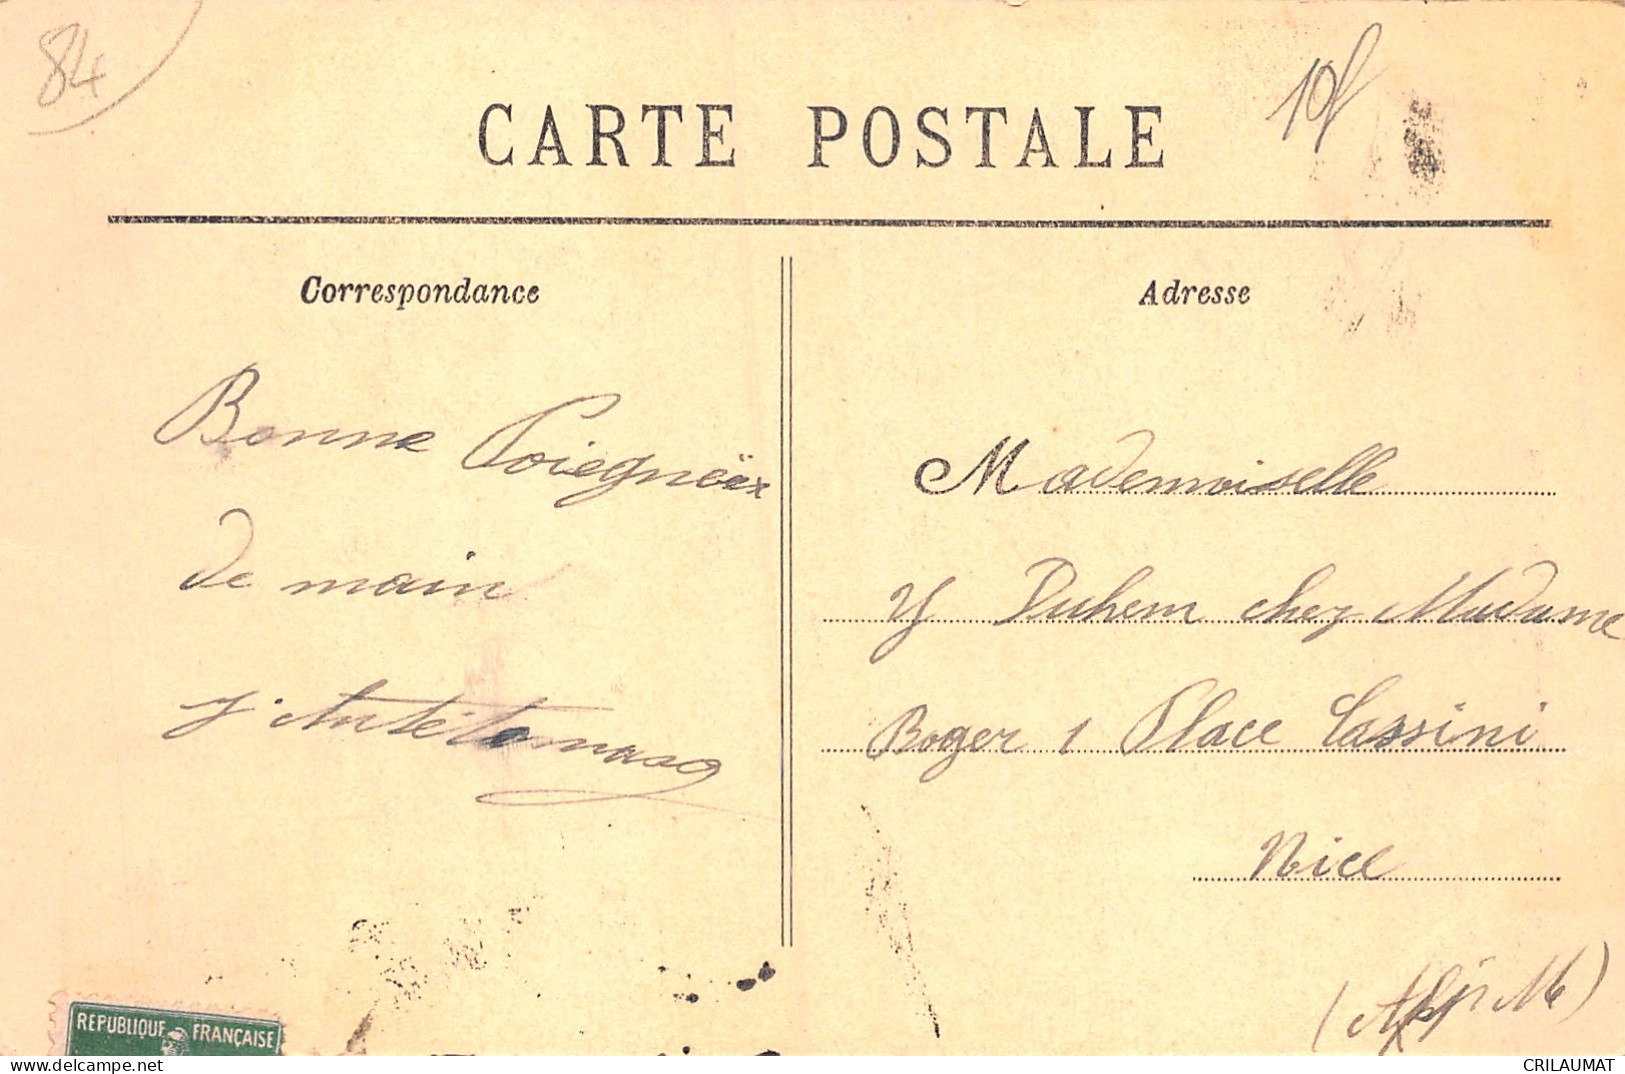 84
10f
CARTE POSTALE
Correspondance
Adresse
Bonne Poiegnéex
de main
Mademoiselle
Y Duhem chez Madame
Roger 1 Place Cassini
Nice
REPUBLIQUE FRANÇAISE
CRILAUMAT